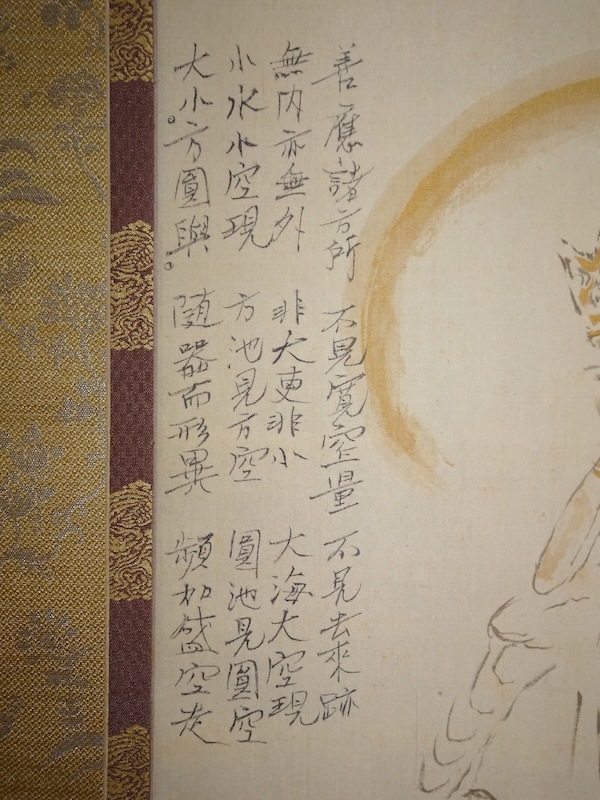 善應諸方所　不見寬空量　不見去來跡
無内亦無外　非大更非小　大海大空現
小水小空現　方池見方空　圓池見圓空
大小方圓與　隨器而形異　頻　盛空